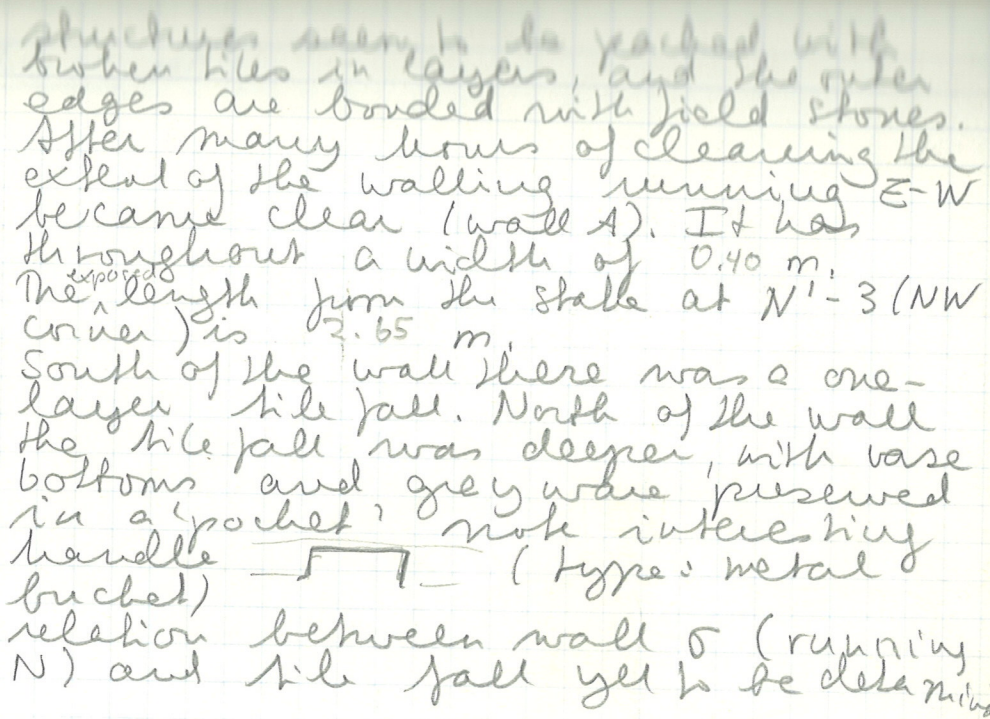 structures seem to be packed with
broken tiles in layers, and the outer
edges are bonded with field stones.
After many hours of cleaning the
extent of the walling running E-W
became clear (wall A). It has
throughout a width of 0.40 m.
The exposed length from the stake at N'-3 (NW
corner) is 2.65 m.
South of the wall there was a one-
layer tile fall. North of the wall
the tile fall was deeper, with vase
bottoms and grey ware preserved
in a 'pocket' note interesting
handle (type: metal
bucket)
relation between wall σ (running
N) and tile fall yet to be determined